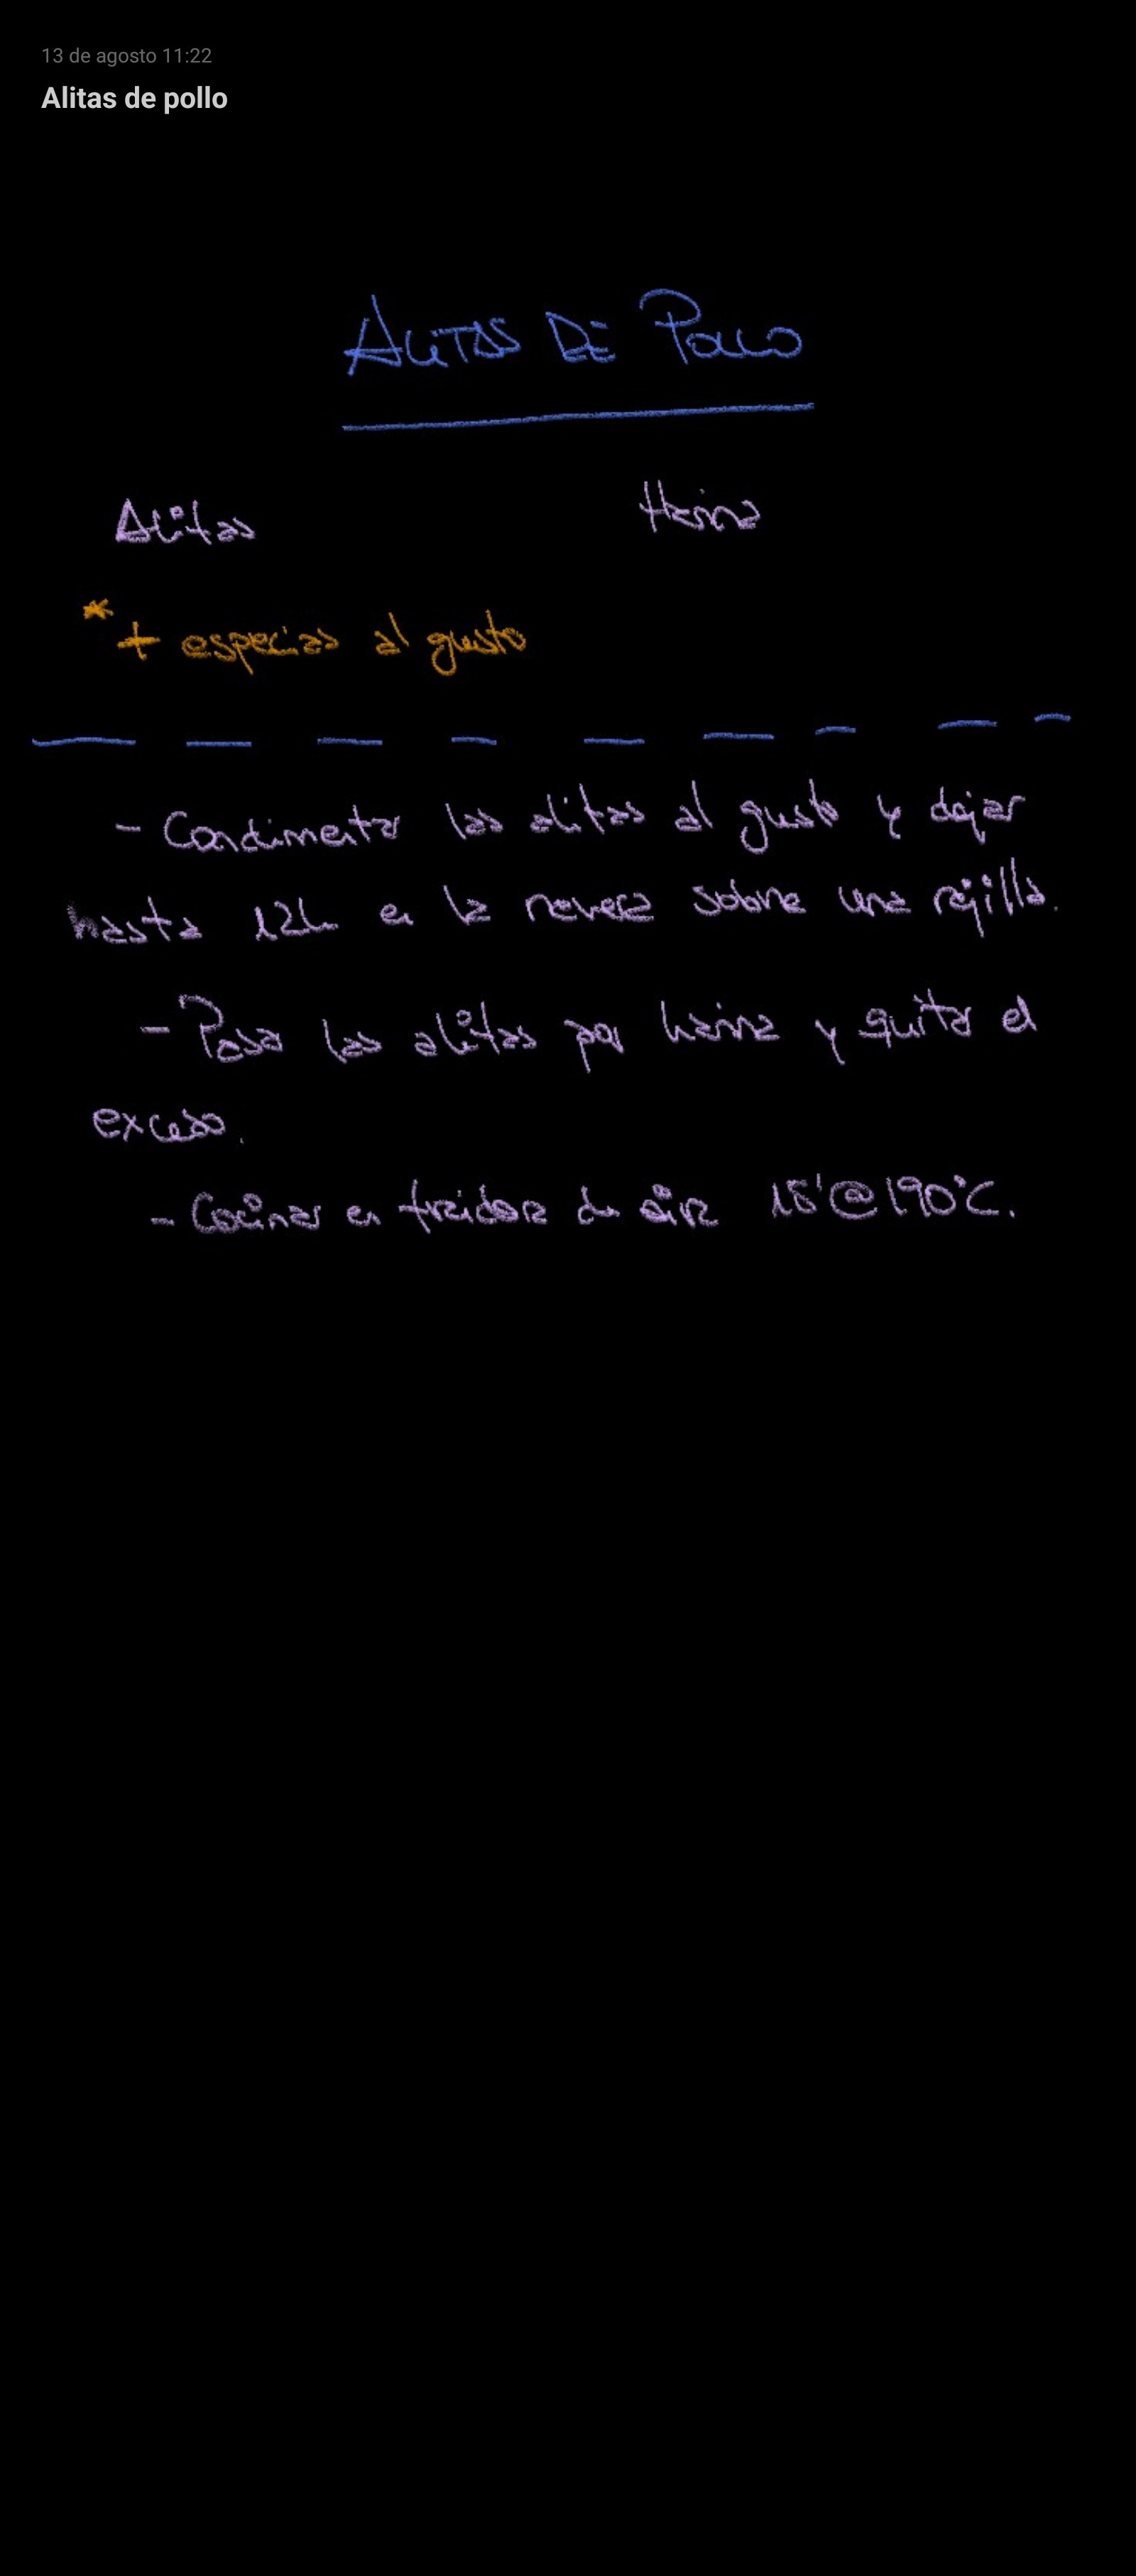 13 de agosto 11:22
Alitas de pollo
ALITAS DE POLLO
Alitas Harina
* + especias al gusto
- Condimentar las alitas al gusto y dejar
hasta 12h en la nevera sobre una rejilla.
- Pasar las alitas por harina y quitar el
exceso.
- Cocinar en freidora de aire 18'@190°C.